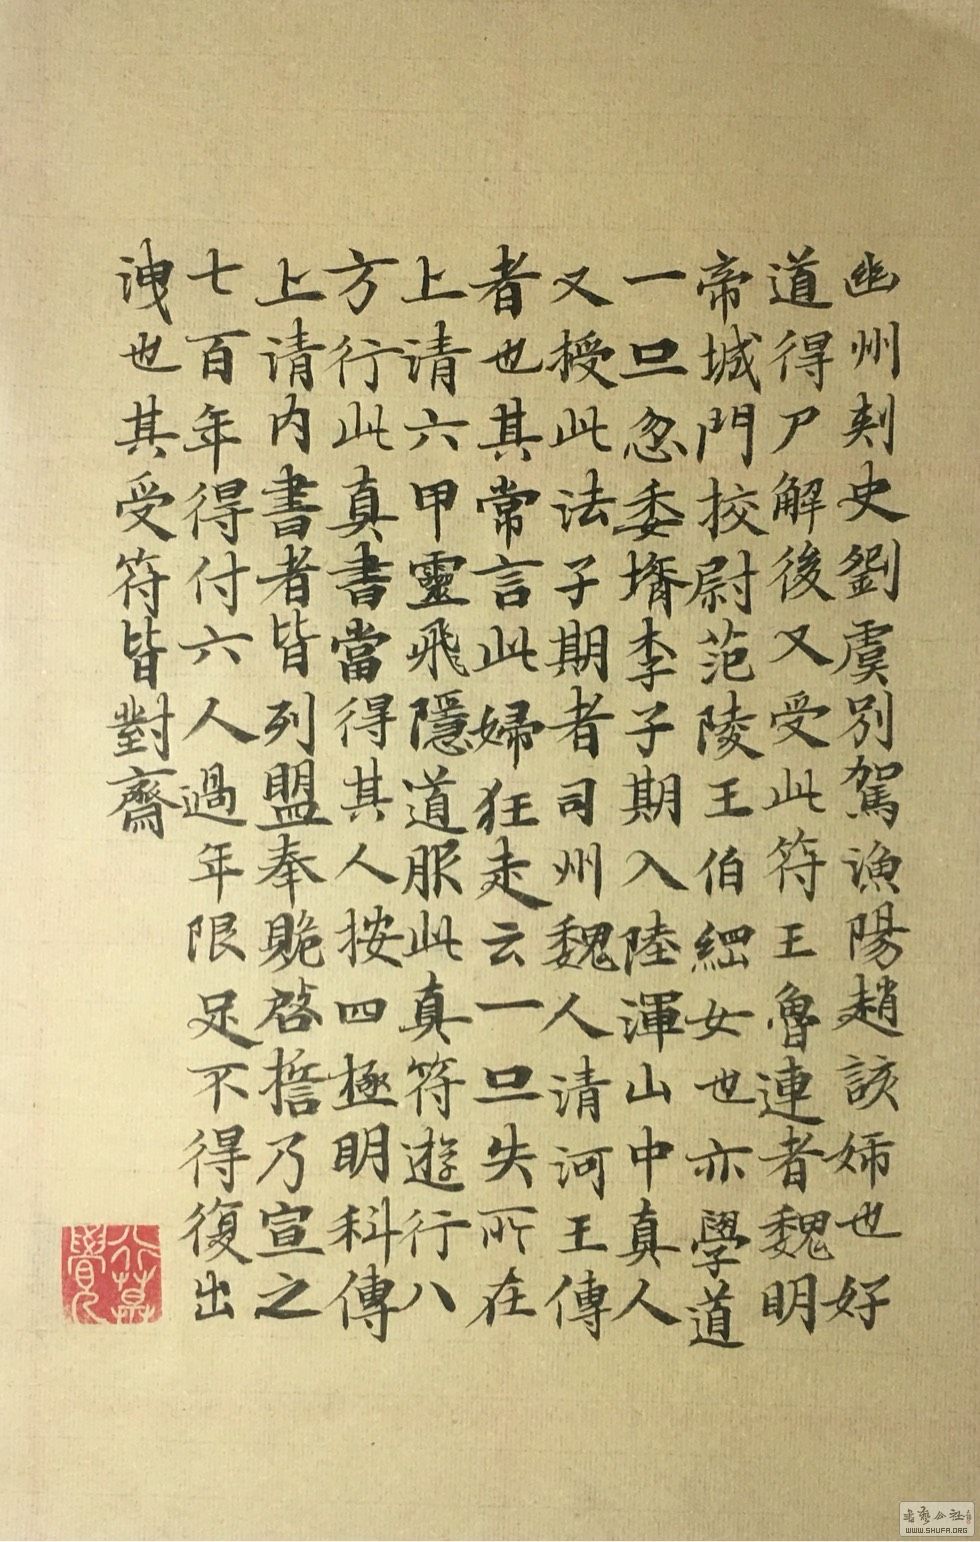 幽州刾史劉虞別駕漁陽趙該姊也好
道得尸解後又受此符王魯連者魏明
帝城門挍尉范陵王伯綱女也亦學道
一旦忽委壻李子期入陸渾山中真人
又授此法子期者司州魏人清河王傳
者也其常言此婦狂走云一旦失所在
上清六甲靈飛隱道服此真符遊行八
方行此真書當得其人按四極明科傳
上清内書者皆列盟奉貺啓誓乃宣之
七百年得付六人過年限足不得復出
洩也其受符皆對齋
書藝公社
WWW.SHUFA.ORG